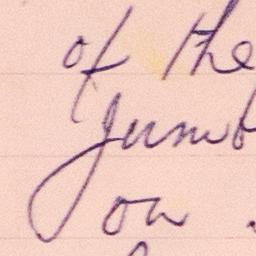 of the
Jumb
on